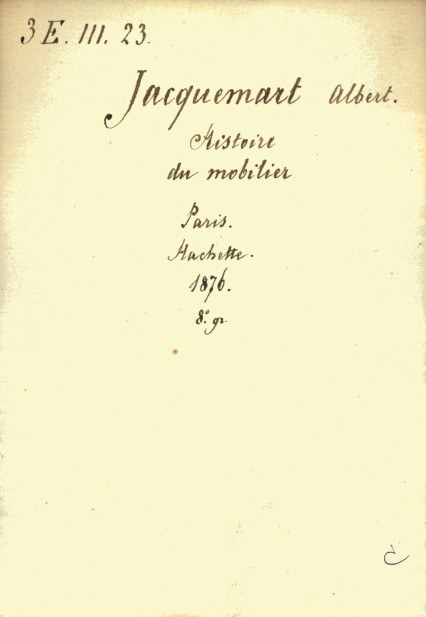 3 E. III. 23.
Jacquemart Albert.
Histoire
du mobilier
Paris.
Hachette.
1876.
8.° gr.